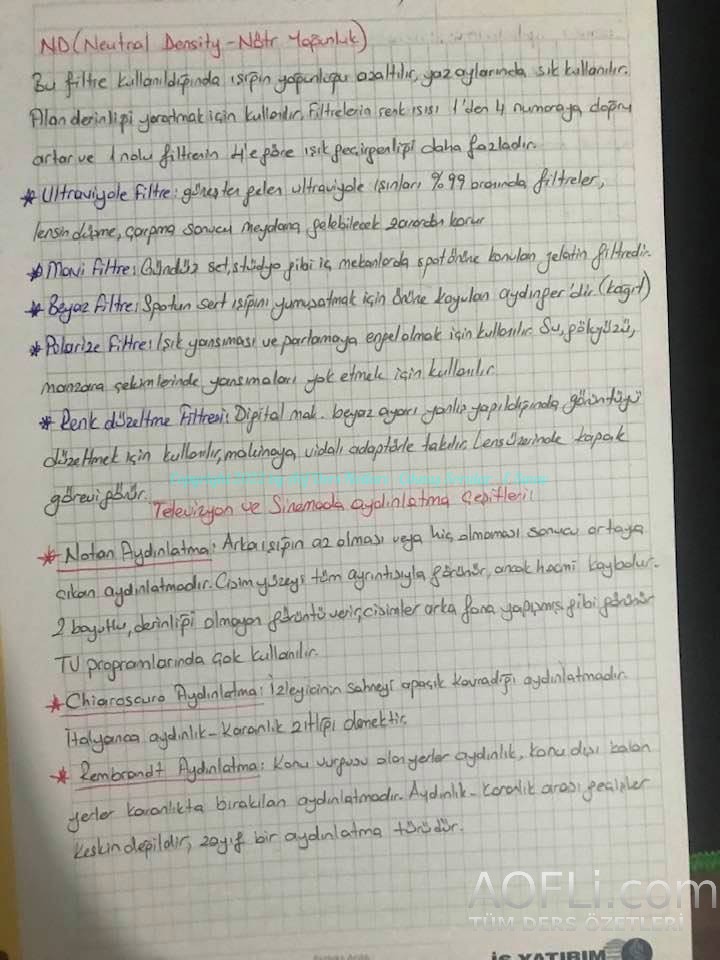 ND (Neutral Density - Nötr Yoğunluk)
Bu filtre kullanıldığında ışığın yoğunluğu azaltılır, yaz aylarında sık kullanılır.
Alan derinliği yaratmak için kullanılır. Filtrelerin renk ısısı 1'den 4 numaraya doğru
artar ve 1 nolu filtrenin 4'e göre ışık geçirgenliği daha fazladır.
* Ultraviyole Filtre: güneşten gelen ultraviyole ışınları %99 oranında filtreler,
lensin düşme, çarpma sonucu meydana gelebilecek zarardan korur
* Mavi Filtre: Gündüz set, stüdyo gibi iç mekanlarda spot önüne konulan jelatin filtredir.
* Beyaz Filtre: Spotun sert ışığını yumuşatmak için önüne koyulan aydınger'dir. (kağıt)
* Polarize Filtre: Işık yansıması ve parlamaya engel olmak için kullanılır. Su, gökyüzü,
manzara çekimlerinde yansımaları yok etmek için kullanılır.
* Renk düzeltme Filtresi: Digital mak. beyaz ayarı yanlış yapıldığında görüntüyü
düzeltmek için kullanılır, makinaya vidalı adaptörle takılır. Lens üzerinde kapak
görevi görür.
Televizyon ve Sinemada aydınlatma Çeşitleri:
* Notan Aydınlatma: Arka ışığın az olması veya hiç olmaması sonucu ortaya
çıkan aydınlatmadır. Cisim yüzeyi tüm ayrıntısıyla görünür, ancak hacmi kaybolur.
2 boyutlu, derinliği olmayan görüntü verir, cisimler arka fona yapışmış gibi görünür
TV programlarında çok kullanılır.
* Chiaroscuro Aydınlatma: İzleyicinin sahneyi apaçık kavradığı aydınlatmadır.
İtalyanca aydınlık-karanlık zıtlığı demektir.
* Rembrandt Aydınlatma: Konu vurgusu olan yerler aydınlık, konu dışı kalan
yerler karanlıkta bırakılan aydınlatmadır. Aydınlık-karanlık arası geçişler
keskin değildir, zayıf bir aydınlatma türüdür.
AOFLi.com
TÜM DERS ÖZETLERİ
İŞ YATIRIM